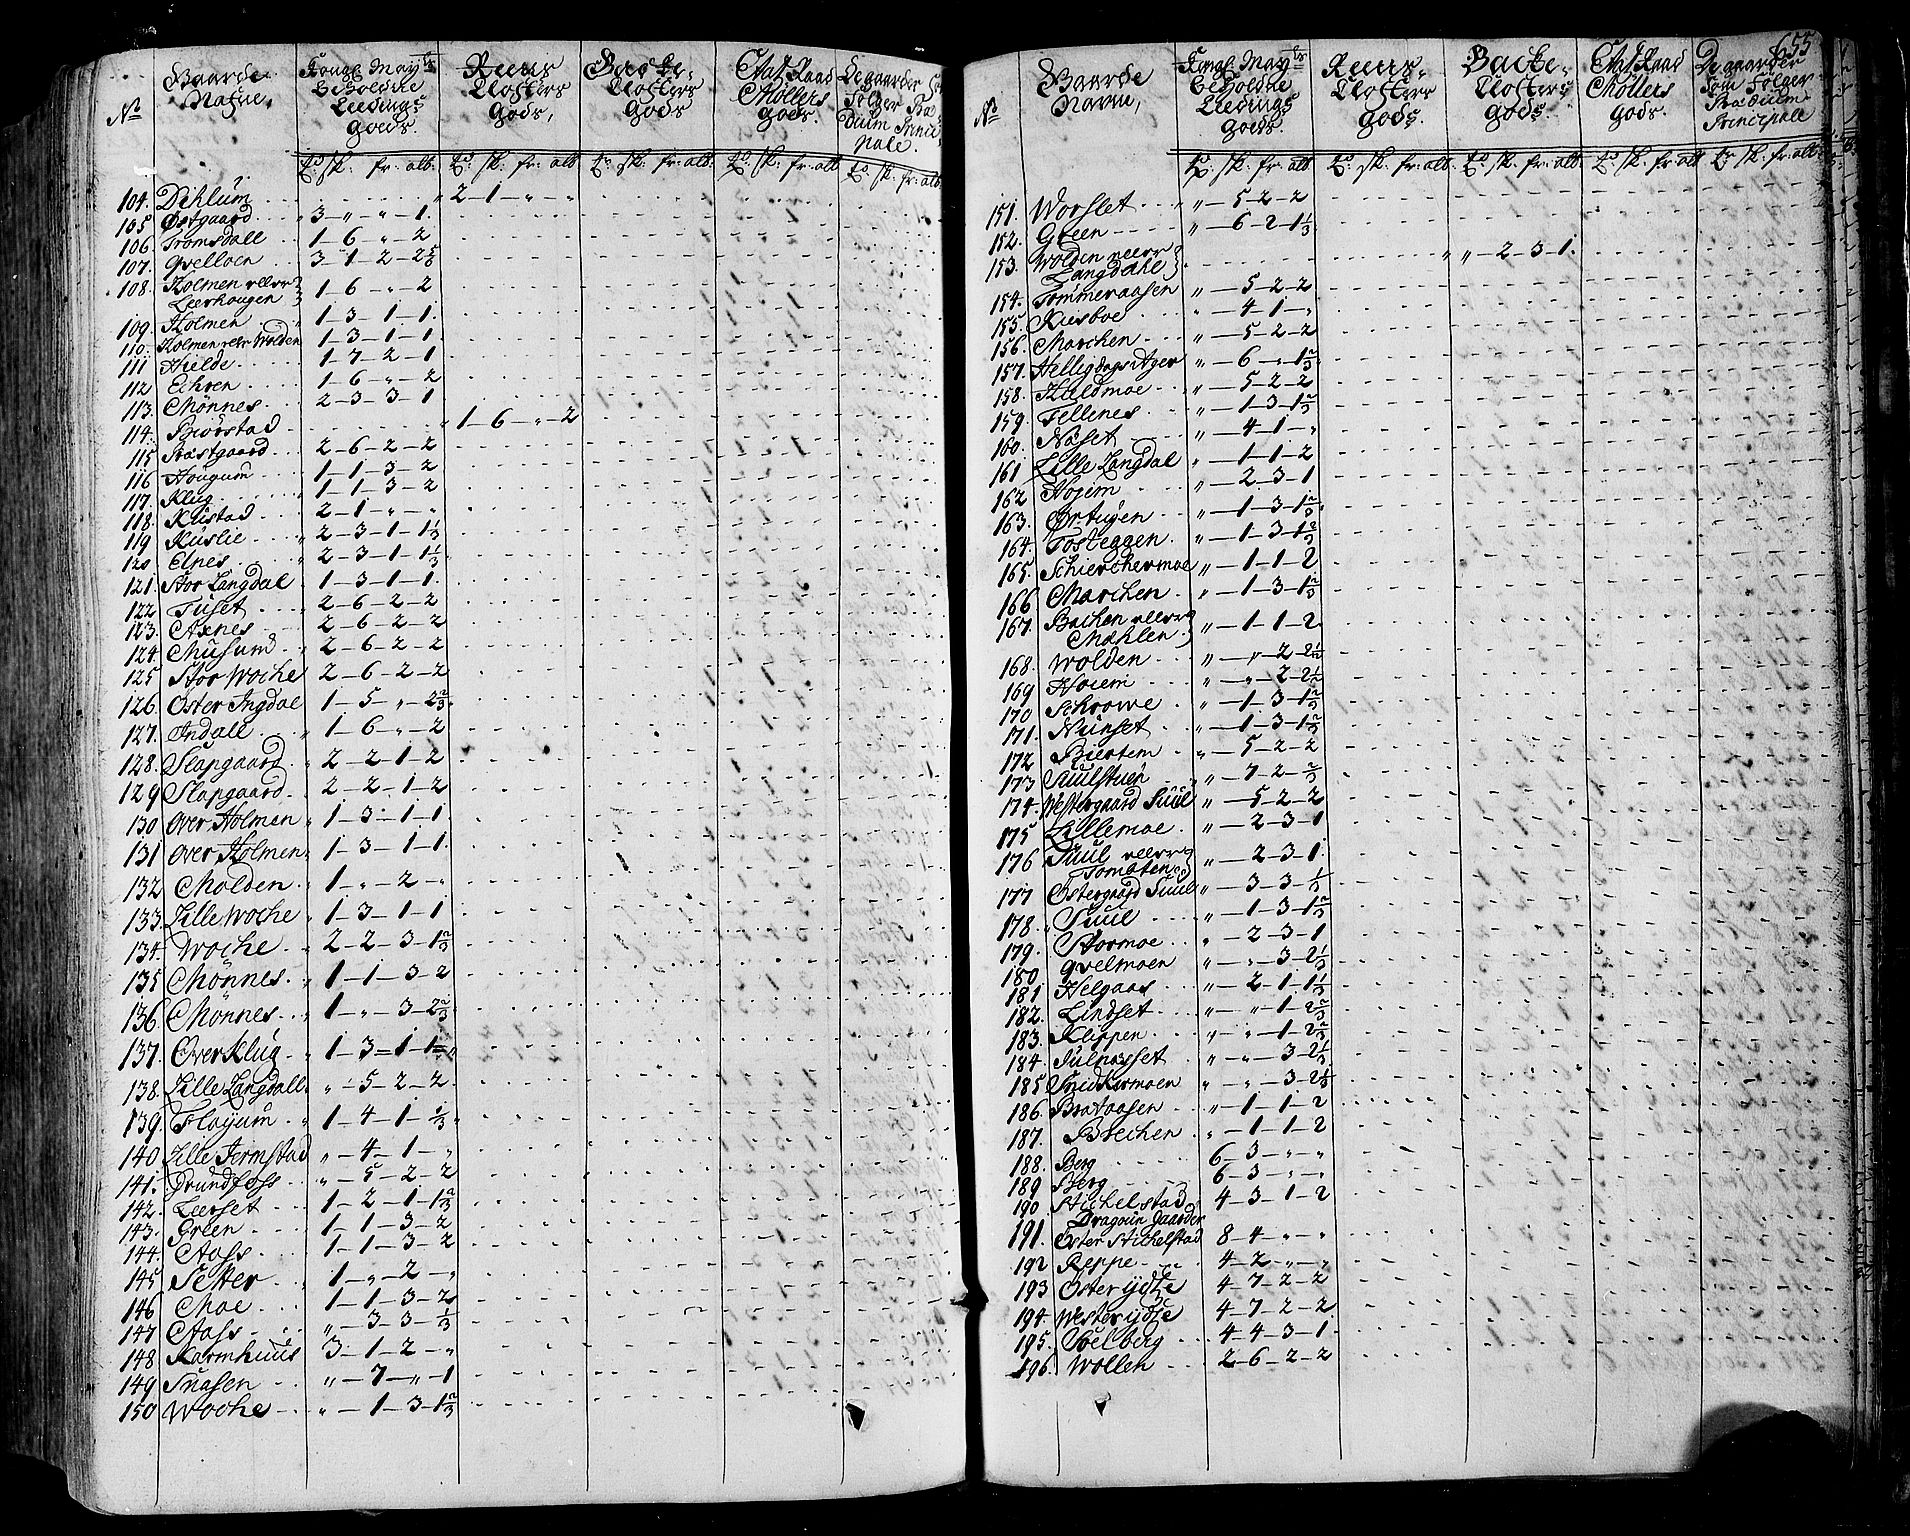 655
Nº Gaarde Nafne, Kongl. Mayts Beholdne Leedings Gods. Reens Closters Gods, Backe Closters Gods Etats Raad Möllers Gods. De gaarder Som Følger Prædium Principale.
to: sk: fr: alb. to: sk: fr: alb to: sk: fr: alb. to: sk: fr: alb to. sk: fr: alb.
104. Dihlum " 2-1-"-"
105 Østgaard 3-"-"-1.
106 Tromsdall 1-6-"-2
107. Qvelloen 3-1-2-2 5/6
108. Holmen
Leerhougen 1-6-"-2
109. Holmen 1-3-1-1.
110. Holmen Wolden 1-3-1-1
111 Hielde 1-7-2-1
112 Echren 1-6-"-2
113. Mönnes 2-3-3-1
114. Biörstad 1-6-"-2
115 Præstgaard 2-6-2-2
116 Hougum 1-1-3-2
117. Klug 1-1-3-2
118. Kustad 2-1-"-"
119 Kuslie 2-3-1-1 1/3
120 Elnes 2-3-1-1 1/3
121. Stor Langdal 1-3-1-1
122 Tuset 2-6-2-2
123. Axnes 2-6-2-2
124. Musum 2-6-2-2
125 Stor Woche 2-6-2-2
126. Öster Ingdal 1-5-"-2 2/3
127. Indall 1-6-"-2
128. Slapgaard 2-2-1-2
129 Slapgaard 2-2-1-2
130 Over Holmen 1-3-1-1
131 Over Holmen 1-3-1-1
132 Molden 1-"-2-"
133. Lille Woche 1-3-1-1
134. Woche 2-2-3-1 2/3
135 Mönnes 1-1-3-2
136 Mönnes 1-"-3-2 2/3
137. Over Klug 1-3-1-1
138. Lille Langdall "-5-2-2
139. Floyum 1-4-1-1/3
140 Lille Jermstad "-4-1-"
141. Grundfoss "-5-2-2
142. Leerset 1-2-1-1 2/3
143. Green 1-1-3-2
144. Aass 1-1-3-2
145 Setter 1-"-2-"
146 Moe 1-1-3-2
147 Aass "-3-3-1/3
148 Karmhuus 3-1-2-"
149 Snasen "-7-"-1
150 Woche "-1-3-1 2/3
Nº Gaarde Navne, Kongl. Mayts Beholdne Leedings Gods. Reens Closters Gods. Backe Closters Gods. Etats Raad Möllers Gods. De gaarder Som Følger Prædium Principale
to: sk: fr: alb. to: sk: fr: alb. to: sk. fr: alb. to: sk. fr: alb to sk: fr: alb.
151. Worslet "-5-2-2
152. Gteen "-6-2-1 1/3
153. Wolden
Langdahl "-"-2-3-1.
154. Tommeraasen "-5-2-2
155. Kiesboe "-4-1-"
156. Marchen "-5-2-2
157. Helligdags Ager "-6-"-1 2/3
158. Haldmoe "-5-2-2
159. Fellenes "-1-3-1 2/3
160. Næset "-4-1-"
161 Lille Langdal "-1-1-2
162 Hojem "-2-3-1
163. Ørtugen "-1-3-1 2/3
164. Tosteggen "-1-3-1 2/3
165. Schierchermoe "-1-1-2
166 Marchen "-1-3-1 2/3
167. Bachen
Mæhlen "-1-1-2
168. Wolden "-"-2-2 1/2
169 Hoiem "-"-2-2 1/2
170 Schrowe "-1-3-1 2/3
171. Nunset "-1-3-1 2/3
172 Biertem "-5-2-2
173 Suulstuen "-7-2-2/3
174. Westergaard Suul "-5-2-2
175 Lillemoe "-2-3-1
176 Suul
Tomoten "-2-3-1
177 Östergaard Suul "-3-3-1/3
178. Suul "-1-3-1 2/3
179. Stormoe "-2-3-1
180 Qvelmoen "-"-3-2 1/3
181 Helgaas "-2-1-1 1/3
182. Lindset "-"-1-2 2/3
183. Klippen "-"-1-2 2/3
184. Julnæsset "-"-3-2 1/3
185 Snidkermoen "-"-3-2 1/3
186. Brataasen "-1-1-2
187. Brechen "-1-1-2
188. Berg 6-3-"-"
189 Berg 6-3-"-"
190 Stichelstad 4-3-1-2
191. Dragoun Gaarder
Öster Stichelstad 8-4-"-"
192 Reppe 4-2-"-"
193 Öster ijdtze 4-7-2-2
194. Wester ijdtze 4-7-2-2
195. Söelberg 4-4-3-1
196. Wollen 2-6-2-2